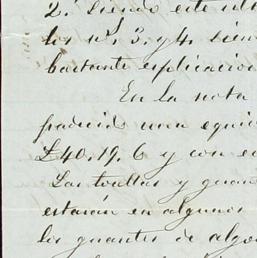 2.º siendo este ult
los nºs. 3. y 4. sien
bastante esplicacion
En la nota
una equi
£40.19.6 y con e
Las toallas y guan
estarán en algunos
los guantes de algo